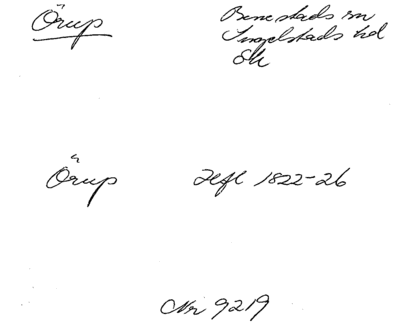 Örup Benestads sn
Ingelstads hd
Sk
Örup Afl 1822-26
Nr 9219